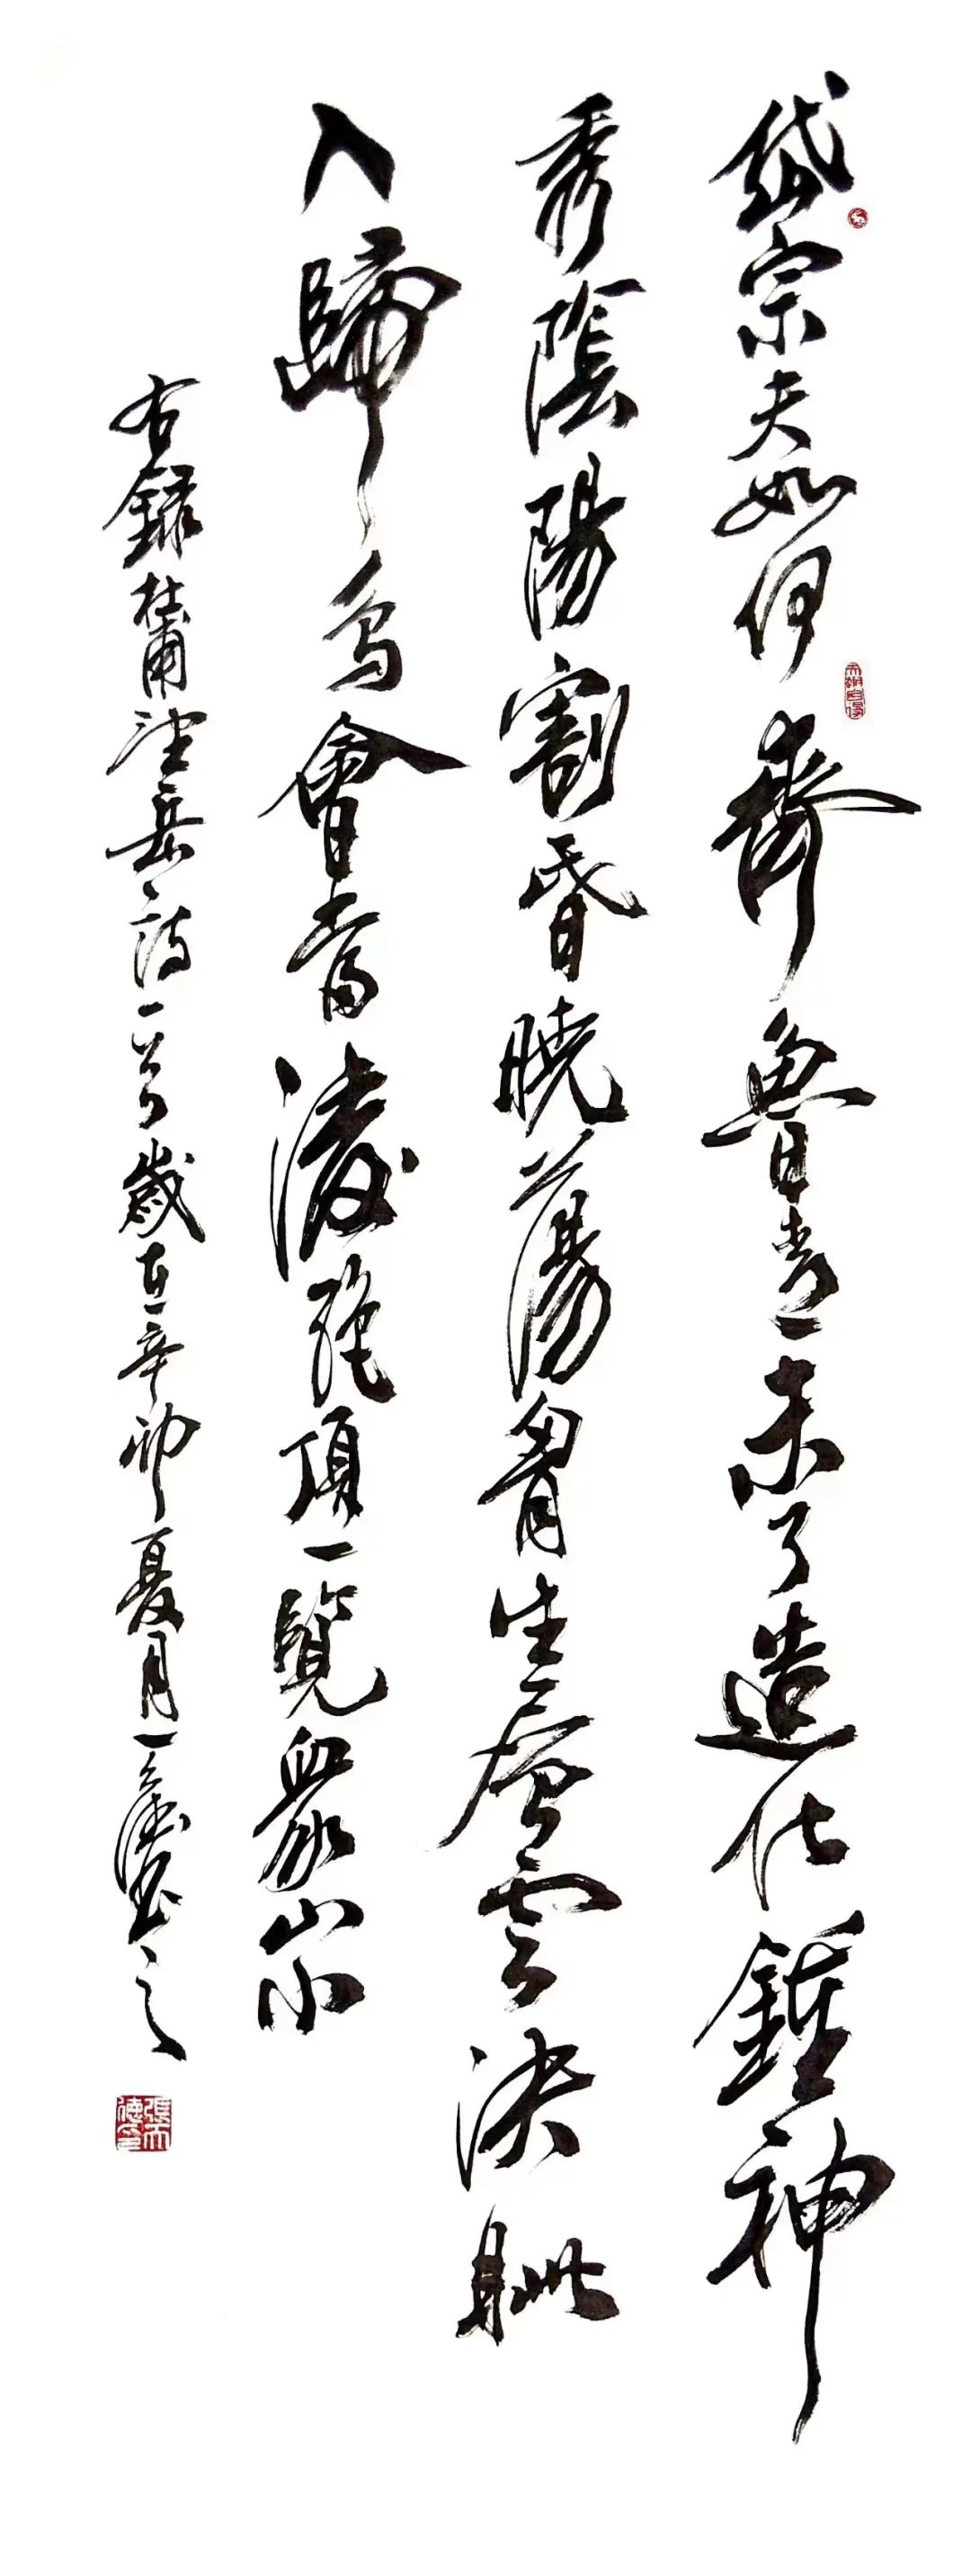 岱宗夫如何齊魯青未了造化鍾神
秀陰陽割昏曉蕩胷生層雲決眦
入歸鳥會當凌絕頂一覽眾山小
右錄杜甫望岳詩一首歲在辛卯夏月天德書之